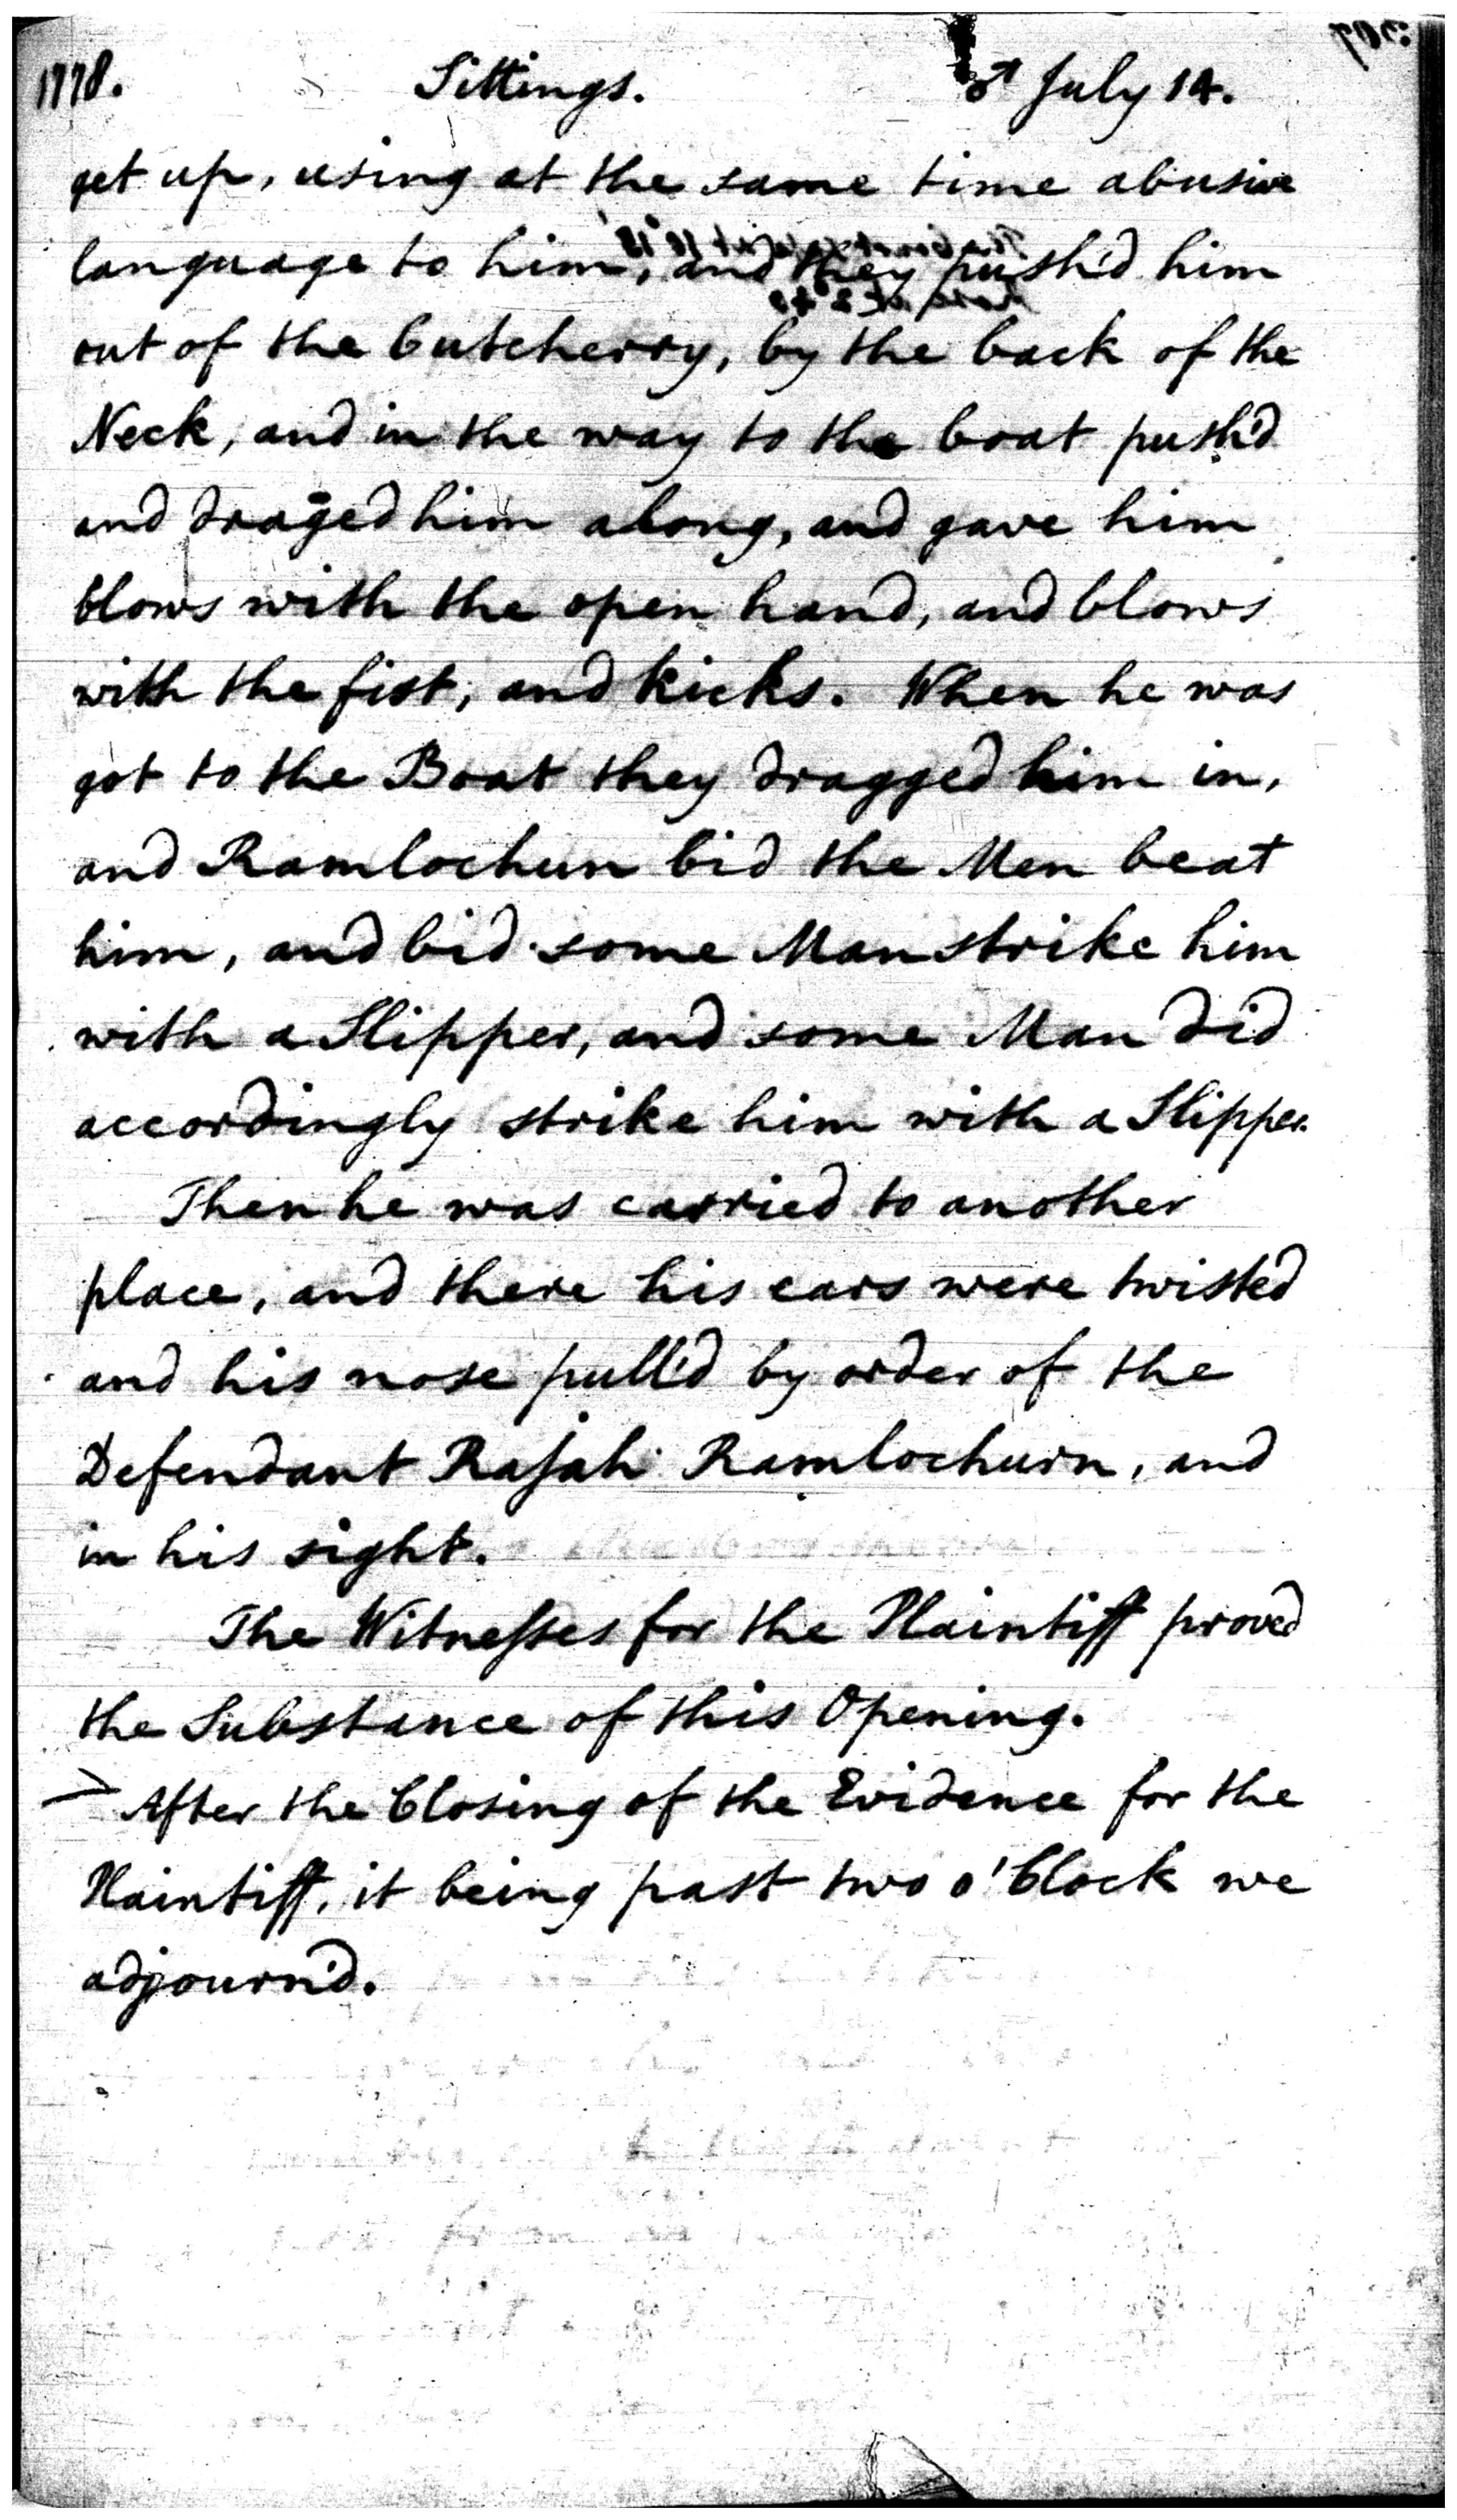 1778. Sittings. ♂ July 14.
get up, using at the same time abusive
language to him, and they push'd him
out of the Cutcherry, by the back of the
Neck, and in the way to the boat push'd
and draged him along, and gave him
blows with the open hand, and blows
with the fist, and kicks. When he was
got to the Boat they dragged him in,
and Ramlochun bid the Men beat
him, and bid some Man strike him
with a Slipper, and some Man did
accordingly strike him with a Slipper.
Then he was carried to another
place, and there his ears were twisted
and his nose pull'd by order of the
Defendant Rajah Ramlochurn, and
in his sight.
The Witneſses for the Plaintiff proved
the Substance of this Opening.
After the Closing of the Evidence for the
Plaintiff, it being past two o'Clock we
adjourn'd.